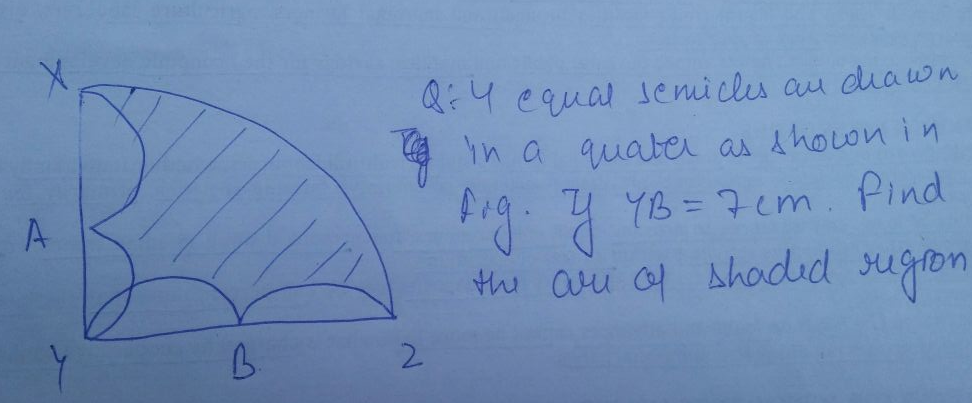 X
Q: 4 equal semicles are drawn
in a quater as shown in
fig. If YB = 7cm. Find
A
the are of shaded region
Y
B
Z